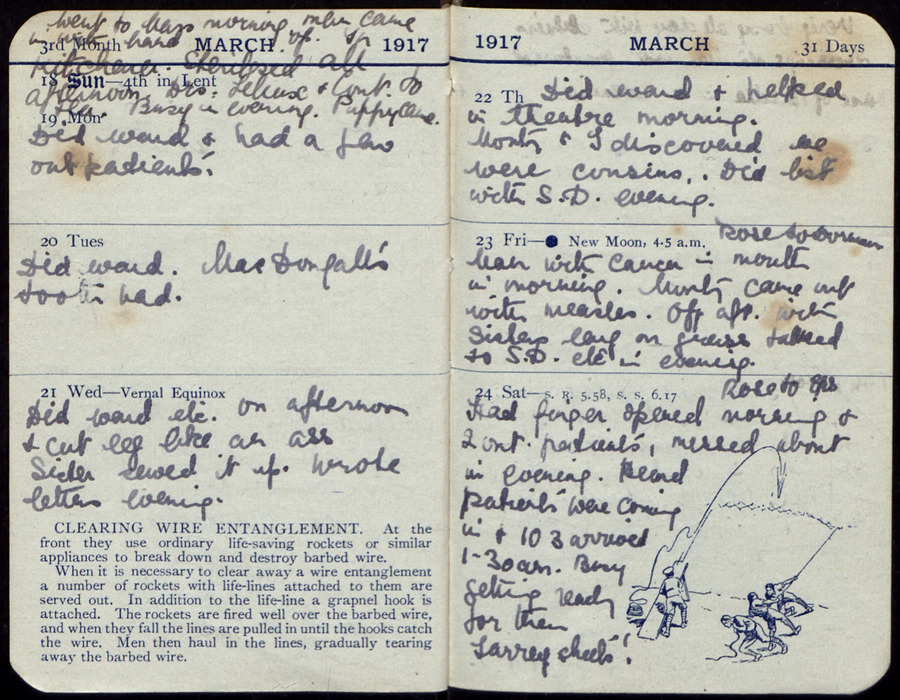 went to Mass morning when came
in with hand up. In
3rd Month MARCH 1917
Kitchener. Sterilised all
18 Sun—4th in Lent
afternoon Drs. & Cont. to
tea. Busy in evening. Puppy came.
19 Mon
Did ward & had a few
out patients.
20 Tues
Did ward. MacDongall's
tooth bad.
21 Wed—Vernal Equinox
Did ward etc. on afternoon
& cut leg like an ass
Sister sewed it up. Wrote
letters evening.
CLEARING WIRE ENTANGLEMENT. At the
front they use ordinary life-saving rockets or similar
appliances to break down and destroy barbed wire.
When it is necessary to clear away a wire entanglement
a number of rockets with life-lines attached to them are
served out. In addition to the life-line a grapnel hook is
attached. The rockets are fired well over the barbed wire,
and when they fall the lines are pulled in until the hooks catch
the wire. Men then haul in the lines, gradually tearing
away the barbed wire.
1917 MARCH 31 Days
22 Th Did ward & helped
in theatre morning.
Monty & I discovered we
were cousins. Did list
with S.D. evening.
23 Fri— New Moon, 4.5 a.m. Rose to
Man with cancer in mouth
in morning. Monty came out
with measles. Off aft. with
Sisters lay on grass talked
to S.D. etc in evening.
24 Sat—S. R. 5.58, S. S. 6.17 Rose to
Had finger opened morning &
2 out. patients, messed about
in evening. Heard
patients were coming
in & 103 arrived
1-30am. Busy
getting ready
for them
Larrey sheets!